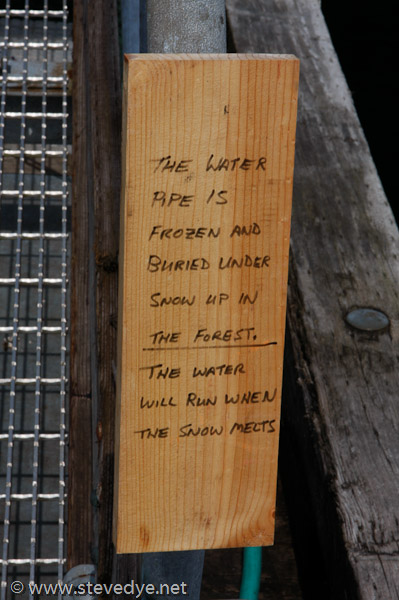 THE WATER
PIPE IS
FROZEN AND
BURIED UNDER
SNOW UP IN
THE FOREST.
THE WATER
WILL RUN WHEN
THE SNOW MELTS
© www.stevedye.net